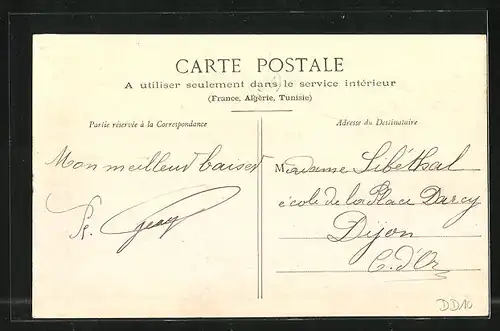 CARTE POSTALE
A utiliser seulement dans le service intérieur
(France, Algérie, Tunisie)
Partie réservée à la Correspondance
Mon meilleur baiser
Adresse du Destinataire
Madame Libéthal
école de la Place Darcy
Dijon
C. d'Or
DD10